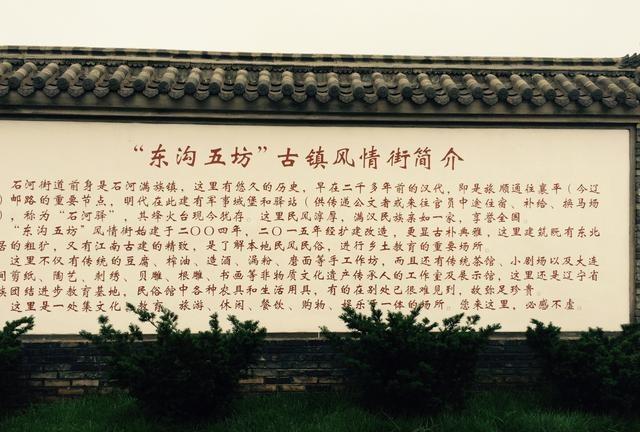 “东沟五坊”古镇风情街简介
石河街道前身是石河满族镇，这里有悠久的历史，早在二千多年前的汉代，即是旅顺通往襄平（今辽
）邮路的重要节点，明代在此建有军事城堡和驿站（供传递公文者或来往官员中途住宿、补给、换马场
），称为“石河驿”，其烽火台现今犹存。这里民风淳厚，满汉民族亲如一家，享誉全国。
“东沟五坊”风情街始建于二〇〇四年，二〇一五年经扩建改造，更显古朴典雅，这里建筑既有东北
居的粗犷，又有江南古建的精致，是了解本地民风民俗，进行乡土教育的重要场所。
这里不仅有传统的豆腐、榨油、造酒、漏粉、磨面等手工作坊，而且还有传统茶馆、小剧场以及大连
间剪纸、陶艺、刺绣、贝雕、根雕、书画等非物质文化遗产传承人的工作室及展示馆，这里还是辽宁省
族团结进步教育基地，民俗馆中各种农具和生活用具，有的在别处已很难见到，故弥足珍贵。
这里是一处集文化、教育、旅游、休闲、餐饮、购物、娱乐于一体的场所。您来这里，必感不虚。